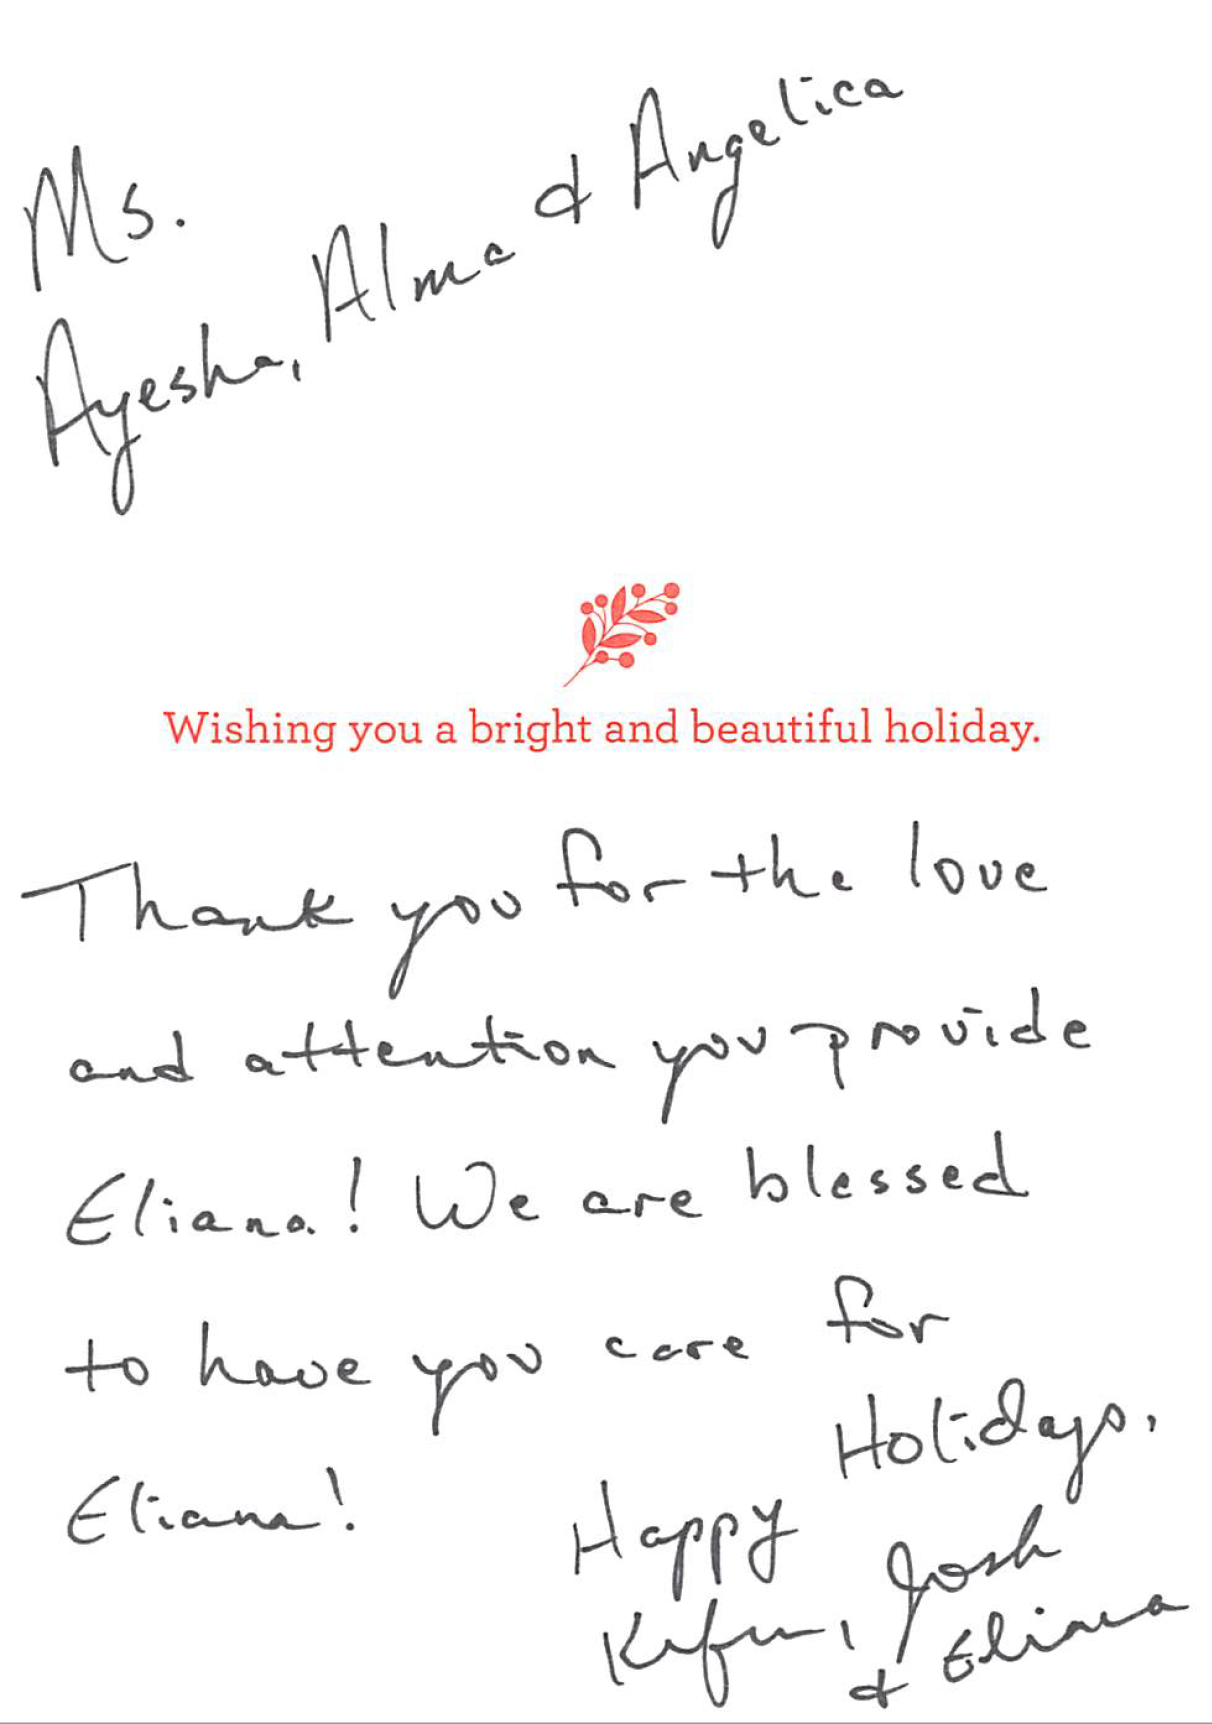 Ms.
Ayesha, Alma & Angelica
Wishing you a bright and beautiful holiday.
Thank you for the love
and attention you provide
Eliana! We are blessed
to have you care for
Eliana!
Happy Holidays,
Josh
& Eliana